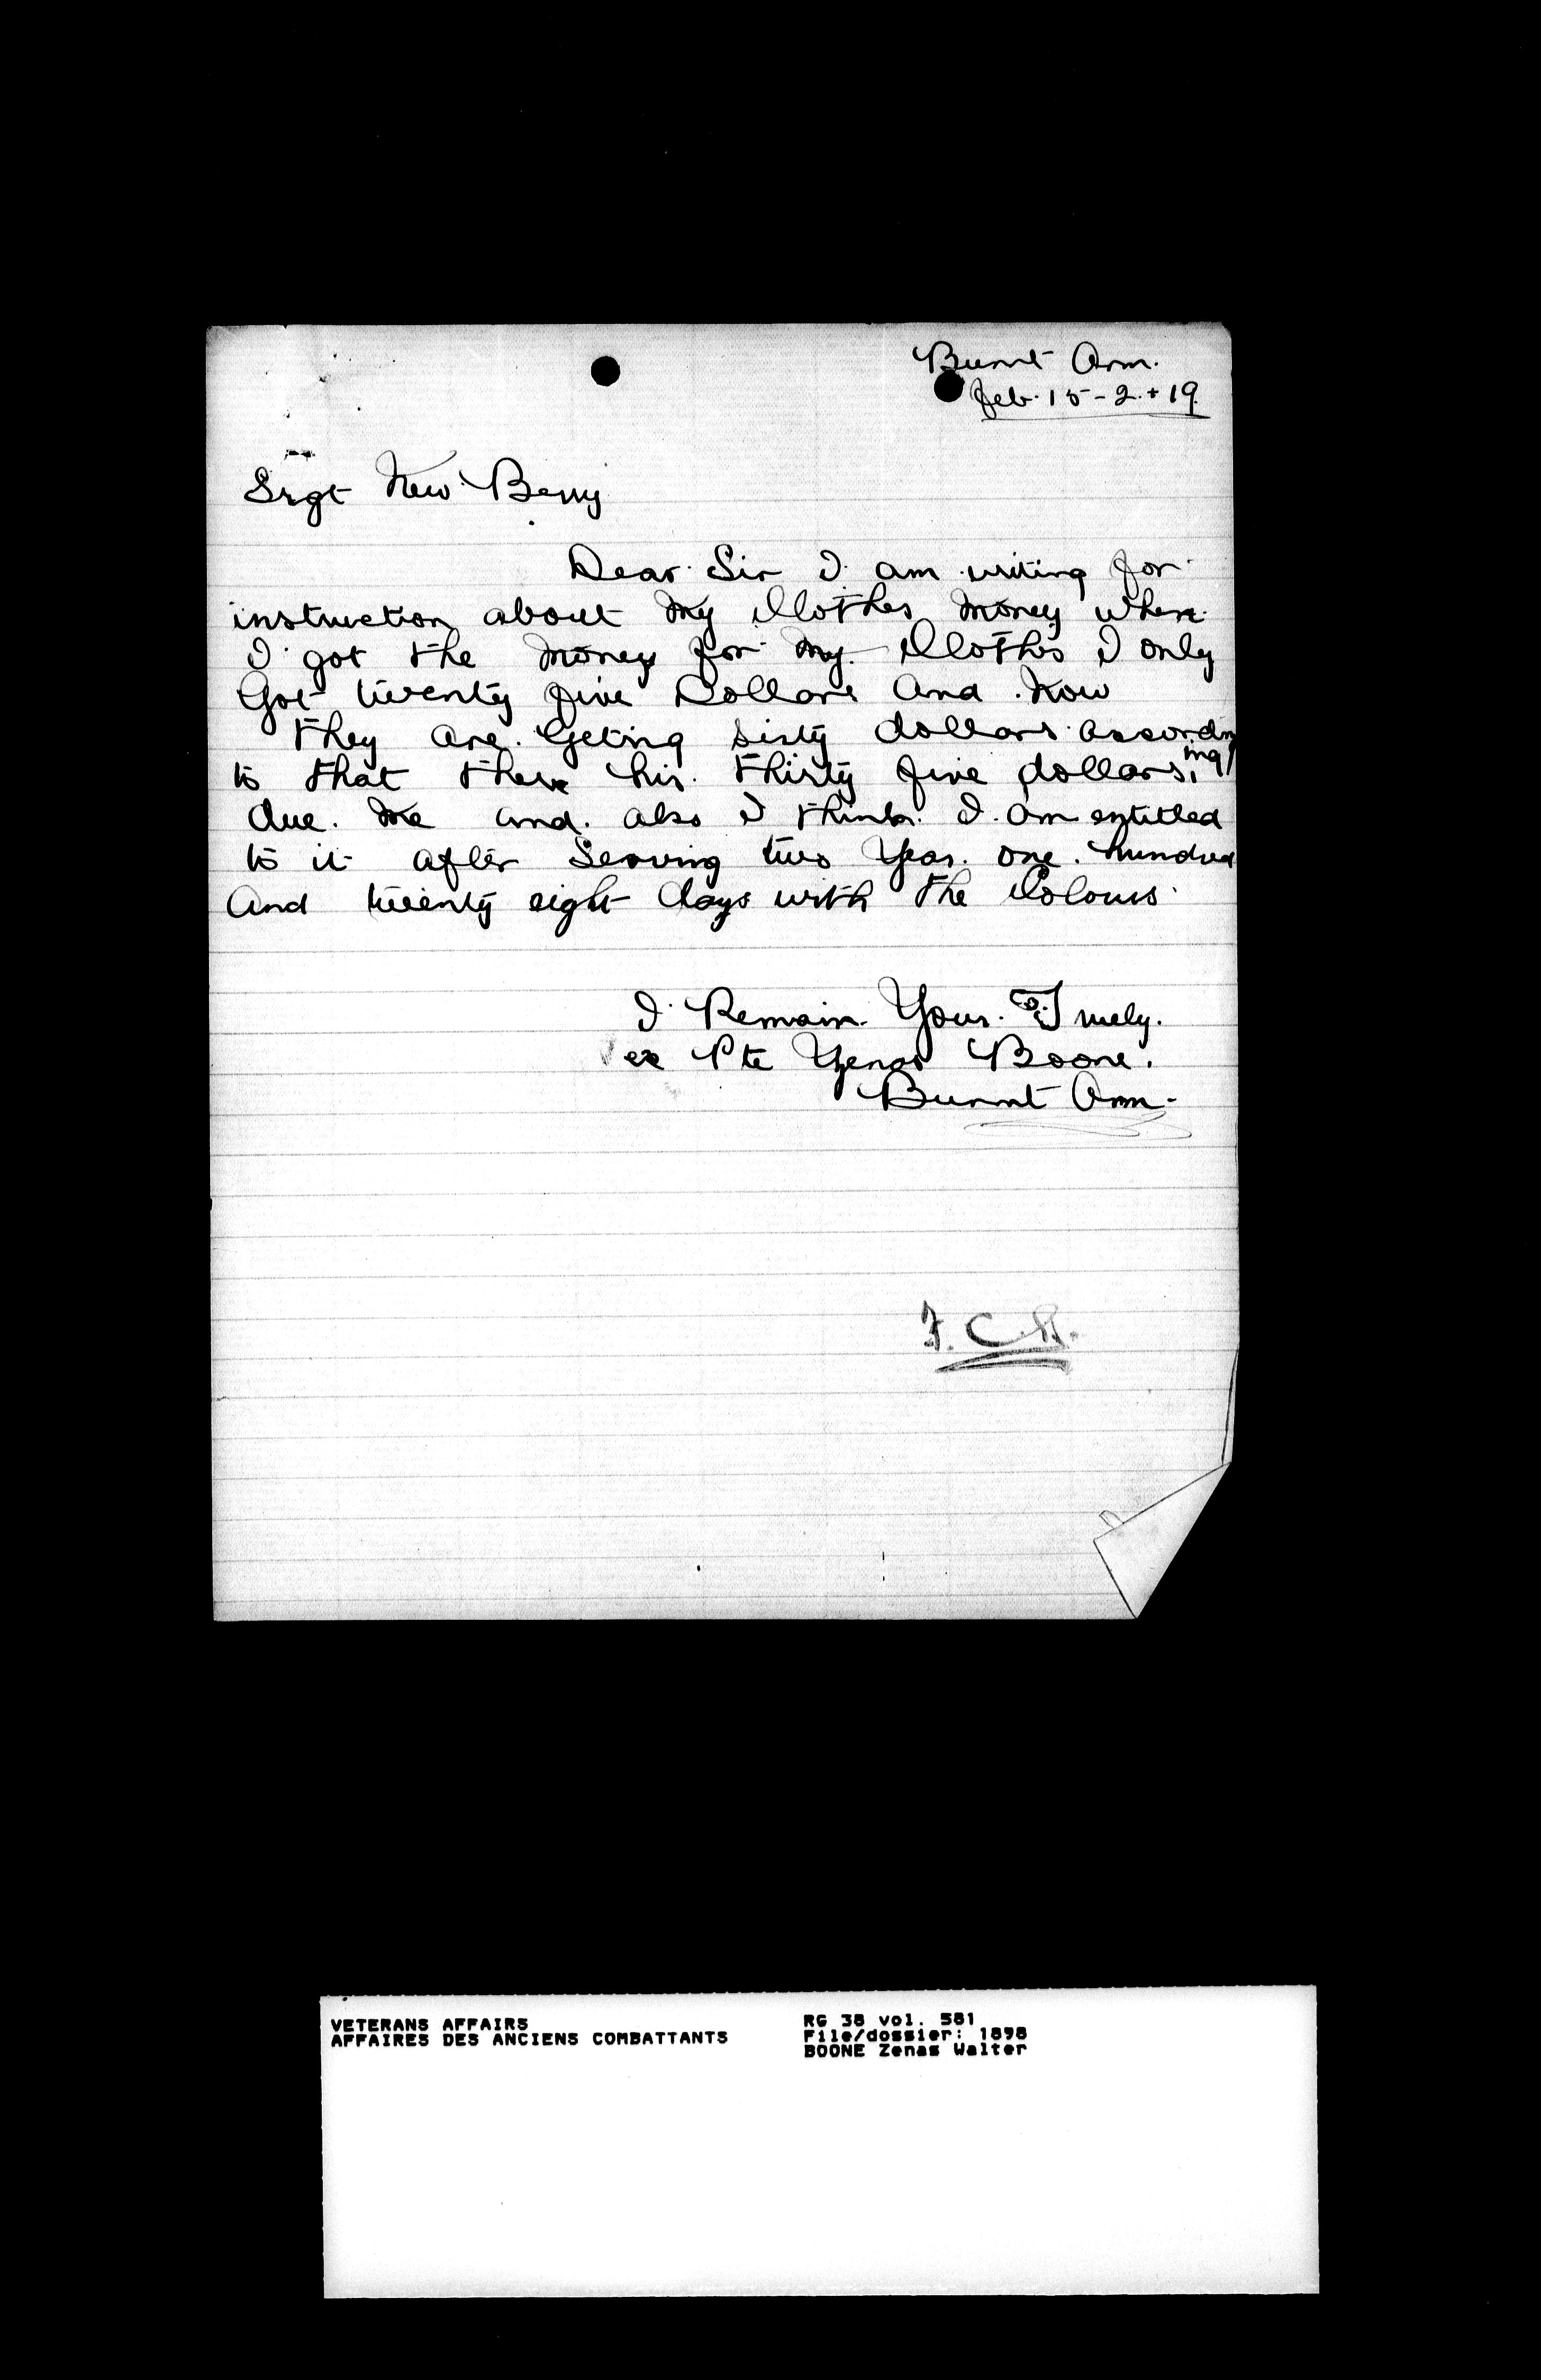 Burnt Arm.
Feb. 15-2.+19
Srgt New Berry
Dear Sir I am writing for
instruction about my Clothes money when
I got the money for my Clothes I only
Got twenty five Dollars And Now
they are Geting sixty dollars according
to that there his thirty five dollars,
due. me and. also I think. I. am entitled
to it after Serving two Year. one. hundred
And twenty eight days with the Colours
I Remain Your. Truely.
ex Pte Zenas Boone.
Burnt Arm-
VETERANS AFFAIRS
AFFAIRES DES ANCIENS COMBATTANTS
RG 38 vol. 581
File/dossier: 1898
BOONE Zenas Walter